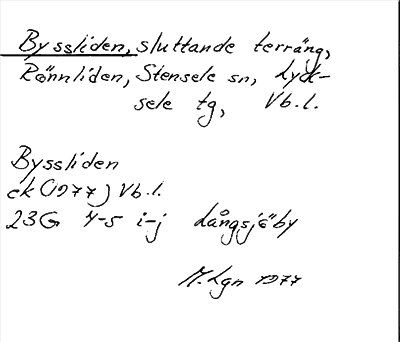 Byssliden, sluttande terräng,
Rönnliden, Stensele sn, Lyck-
sele tg, Vb.l.
Byssliden
ek (1977) Vb.l.
23G 4-5 i-j Långsjöby
M. Lgn 1977